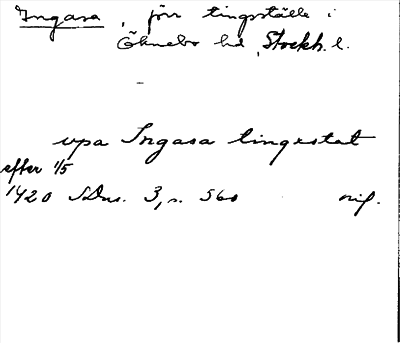 Ingasa, förr tingsställe i
Öknebo hd, Stockh. l.
upa Ingasa tingestat
efter 1/5
1420 SDns. 3, s. 560 orig.